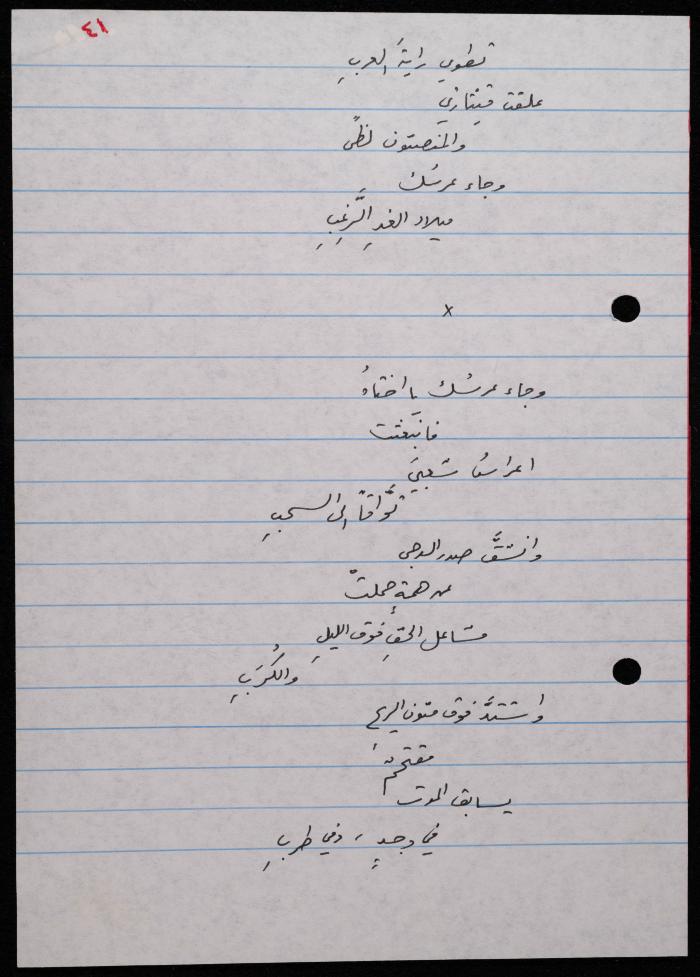 ٤١
تطوي رايةَ العربِ
علقت قيثارتي
والمنصتون لظًى
وجاء عرسُك
ميلاد الغدِ الزَّغِبِ
x
وجاء عرسُك يا اختاهُ
فانبَعثت
اعراسُ شعبيَ
توَّاقًا الى السحبِ
وانشقَّ صدر الدجى
عن همة حملتْ
مشاعل الحقِ فوق الليلِ
والكُرَبِ
واشتدَّ فوق متون الريح
مقتحمٌ
يسابق الموت
في وجدٍ ، وفي طربِ